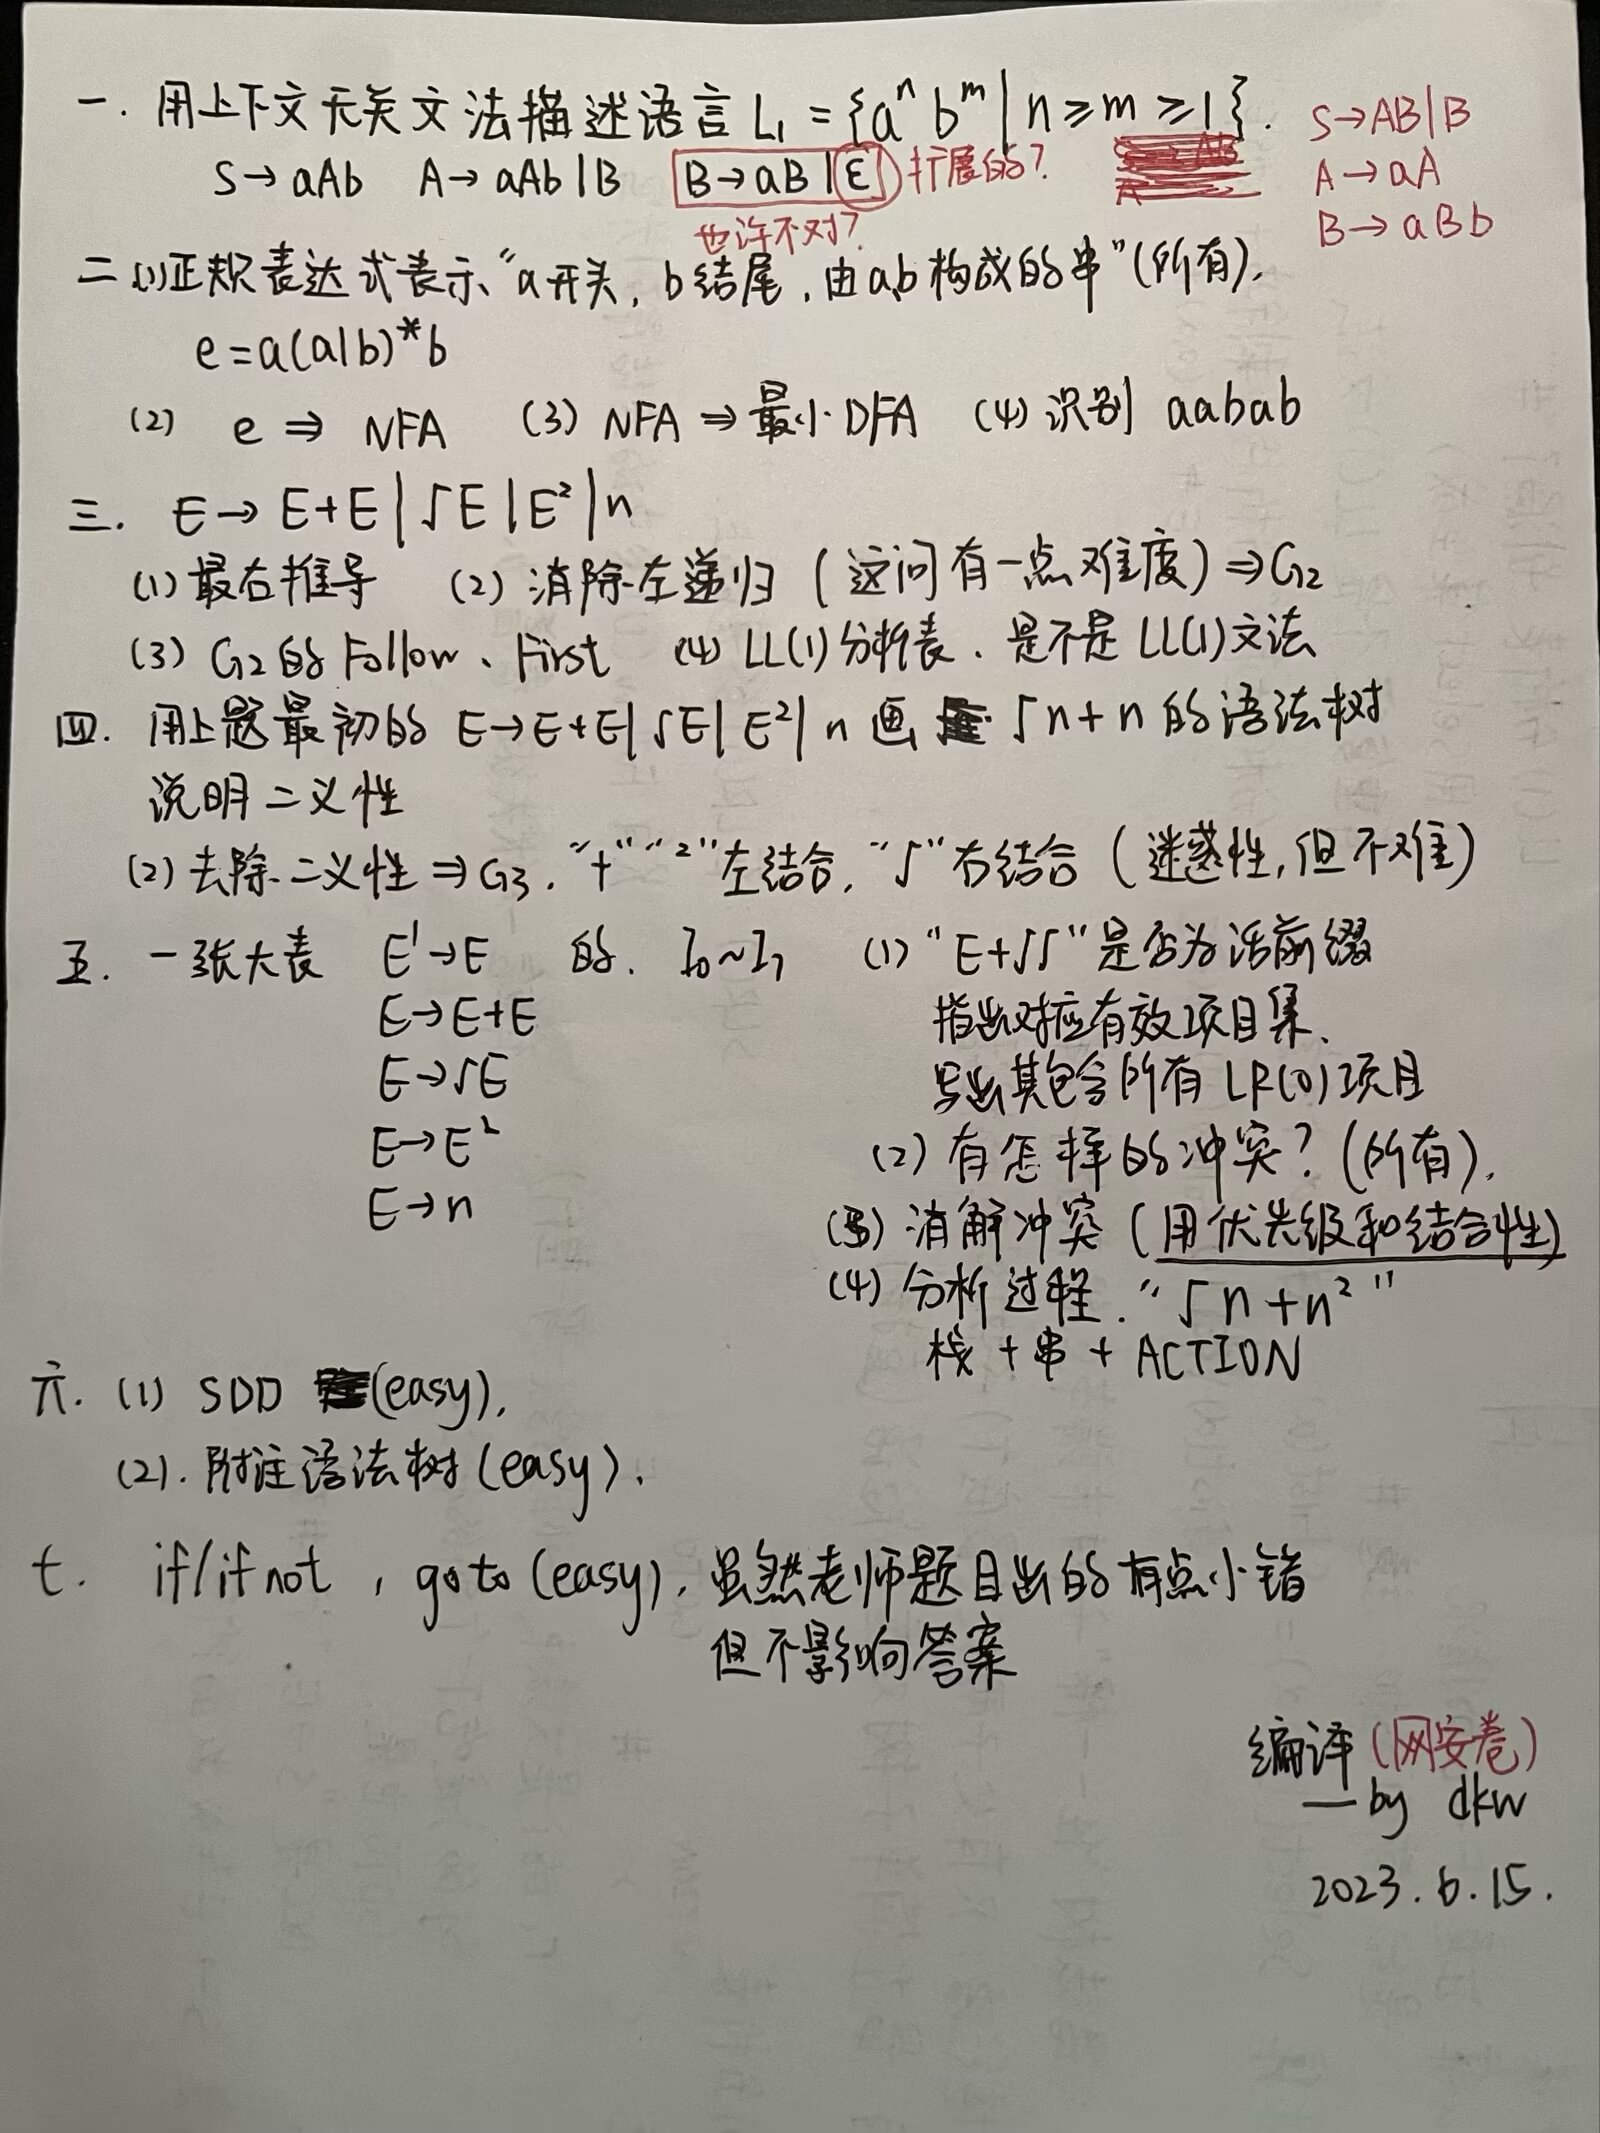 一. 用上下文无关文法描述语言 L₁ = {aⁿ bᵐ | n ≥ m ≥ 1}.
S → aAb A → aAb | B B → aB | ε 扩展的?
也许不对?
S → AB | B
A → aA
B → aBb
二 (1)正规表达式表示“a开头, b结尾, 由a,b构成的串”(所有).
e = a(a|b)*b
(2) e ⇒ NFA (3) NFA ⇒ 最小DFA (4) 识别 aabab
三. E → E+E | √E | E² | n
(1) 最右推导 (2) 消除左递归 (这问有一点难度) ⇒ G₂
(3) G₂的Follow、First (4) LL(1)分析表、是不是LL(1)文法
四. 用上题最初的 E → E+E | √E | E² | n 画 √n+n 的语法树
说明二义性
(2) 去除二义性 ⇒ G₃. “+” “²”左结合, “√”右结合 (迷惑性, 但不难)
五. 一张大表 E' → E 的. I₀~I₇ (1) “E+√√”是否为活前缀
E → E+E 指出对应有效项目集、
E → √E 写出其包含所有LR(0)项目
E → E² (2) 有怎样的冲突? (所有).
E → n (3) 消解冲突 (用优先级和结合性)
(4) 分析过程. “√n+n²”
栈 + 串 + ACTION
六. (1) SDD (easy).
(2). 附注语法树 (easy).
七. if/if not , goto (easy). 虽然老师题目出的有点小错
但不影响答案
编译 (网安卷)
— by dkw
2023.6.15.